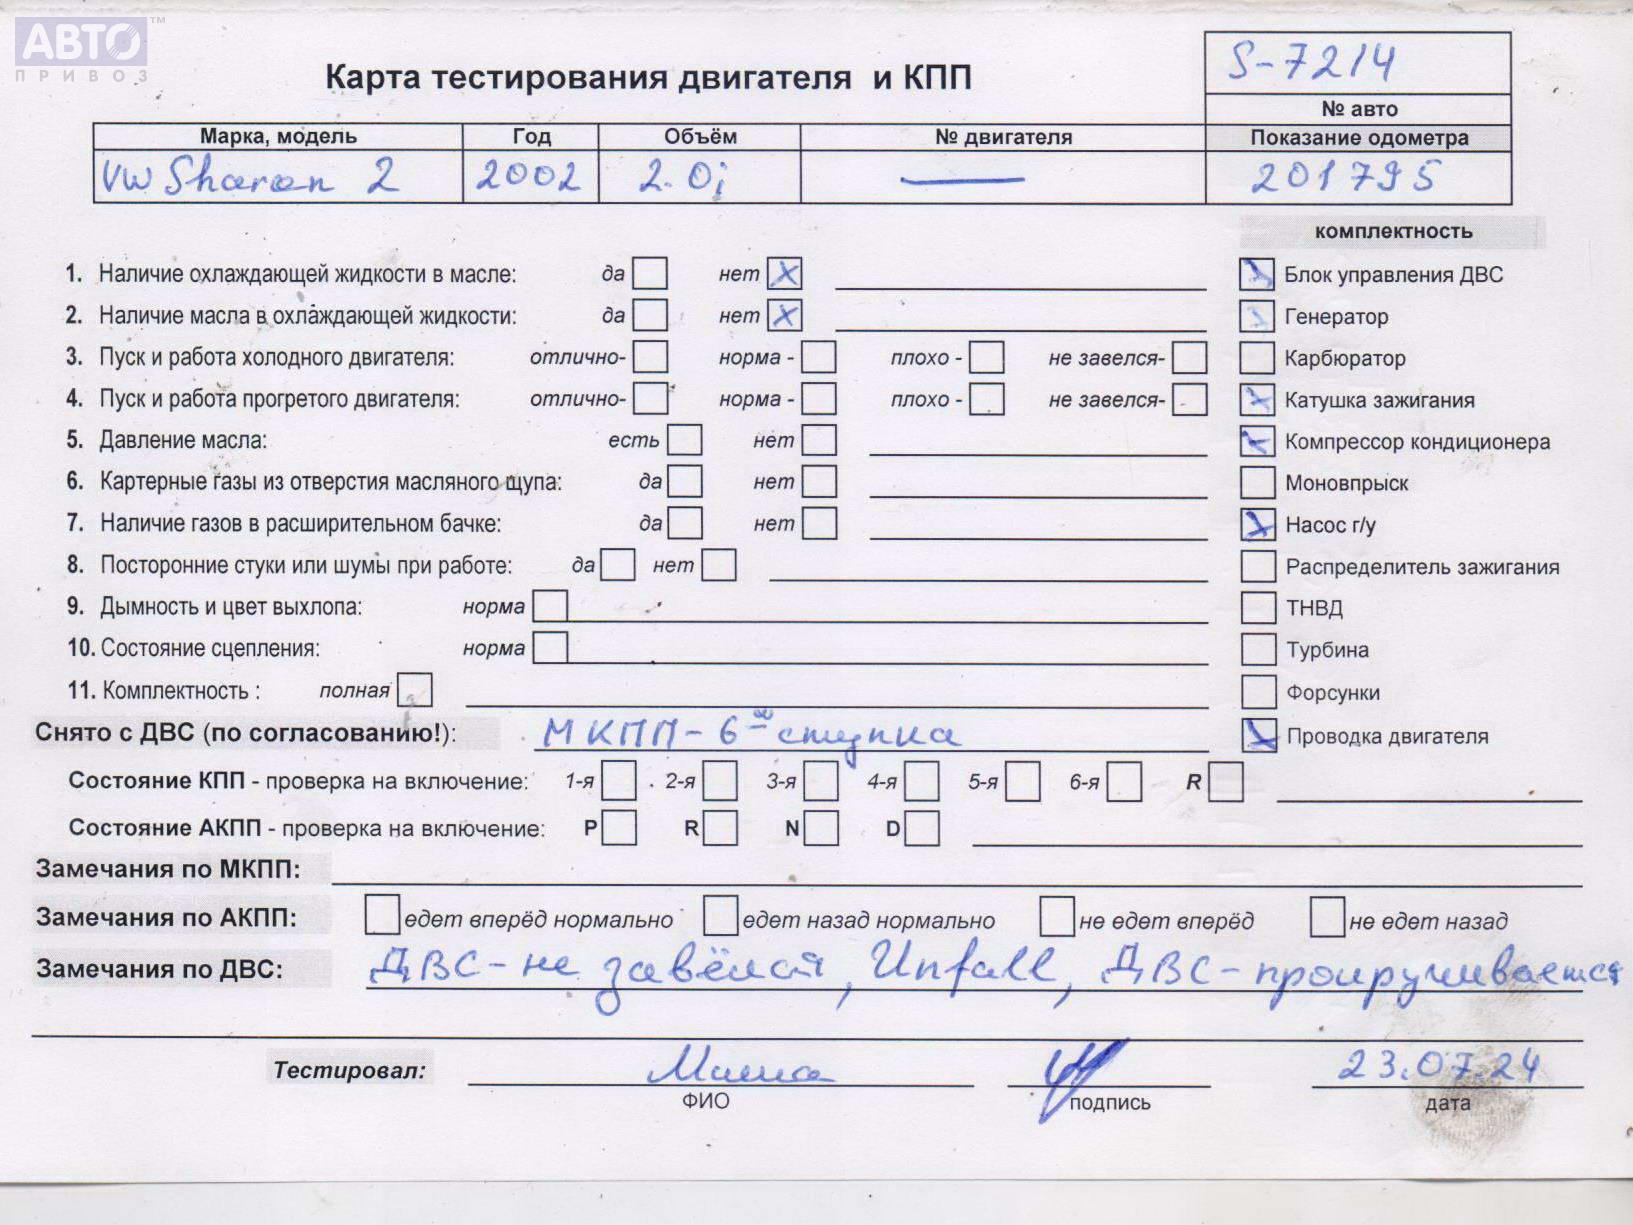 АВТО™
ПРИВОЗ
Карта тестирования двигателя и КПП
S-7214
№ авто
Марка, модель Год Объём № двигателя Показание одометра
VW Sharan 2 2002 2.0i — 201795
комплектность
1. Наличие охлаждающей жидкости в масле: да нет X Блок управления ДВС
2. Наличие масла в охлаждающей жидкости: да нет X Генератор
3. Пуск и работа холодного двигателя: отлично- норма - плохо - не завелся- Карбюратор
4. Пуск и работа прогретого двигателя: отлично- норма - плохо - не завелся- Катушка зажигания
5. Давление масла: есть нет Компрессор кондиционера
6. Картерные газы из отверстия масляного щупа: да нет Моновпрыск
7. Наличие газов в расширительном бачке: да нет Насос г/у
8. Посторонние стуки или шумы при работе: да нет Распределитель зажигания
9. Дымность и цвет выхлопа: норма ТНВД
10. Состояние сцепления: норма Турбина
11. Комплектность : полная Форсунки
Снято с ДВС (по согласованию!): МКПП-6ая ступка Проводка двигателя
Состояние КПП - проверка на включение: 1-я 2-я 3-я 4-я 5-я 6-я R
Состояние АКПП - проверка на включение: P R N D
Замечания по МКПП:
Замечания по АКПП: едет вперёд нормально едет назад нормально не едет вперёд не едет назад
Замечания по ДВС: ДВС-не завёлся, Unfall, ДВС-прокручивается
Тестировал: Миша 23.07.24
ФИО подпись дата